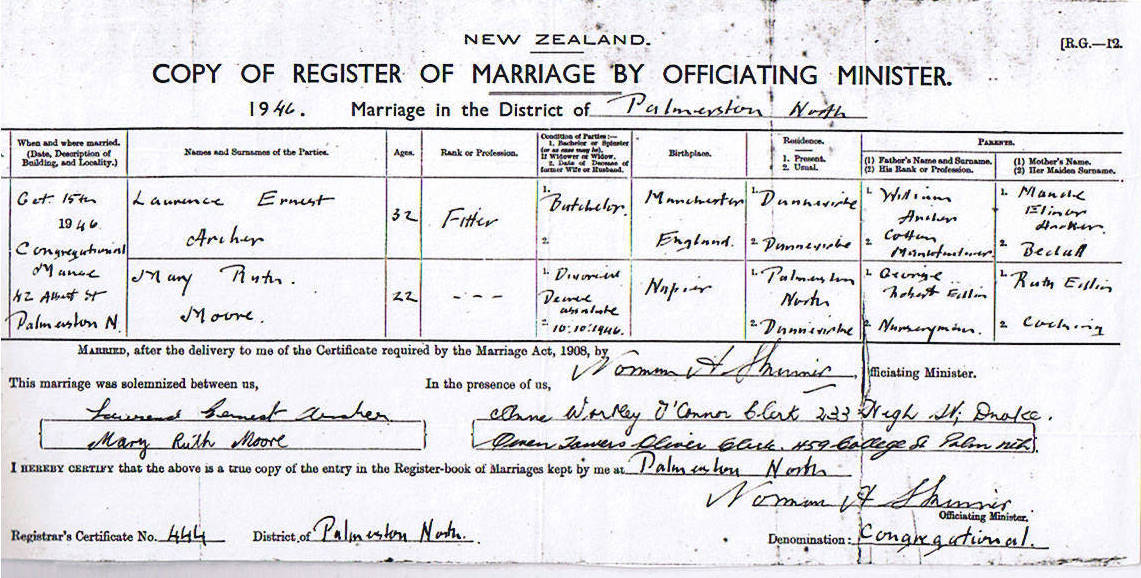 NEW ZEALAND.
[R.G.—12.
COPY OF REGISTER OF MARRIAGE BY OFFICIATING MINISTER.
1946. Marriage in the District of Palmerston North
When and where married. (Date, Description of Building, and Locality.)
Names and Surnames of the Parties.
Ages.
Rank or Profession.
Condition of Parties :— 1. Bachelor or Spinster (or as case may be). If Widower or Widow. 2. Date of Decease of former Wife or Husband.
Birthplace.
Residence. 1. Present. 2. Usual.
PARENTS.
(1) Father's Name and Surname. (2) His Rank or Profession.
(1) Mother's Name. (2) Her Maiden Surname.
Oct. 15th
1946.
Congregational
Manse
42 Albert St
Palmerston N.
Laurence Ernest
Archer
32
Fitter
1. Batchelor.
2.
Manchester
England.
1. Dannevirke
2. Dannevirke
1. William
Archer
2. Cotton
Manufacturer
1. Maude
Elinor
Archer.
2.
Mary Ruth.
Moore.
22
- - -
1. Divorced
Decree
absolute
2. 10.10.1946.
Napier
1. Palmerston
North
2. Dannevirke
1. George
Robert
2. Nurseryman.
1. Ruth
2.
MARRIED, after the delivery to me of the Certificate required by the Marriage Act, 1908, by Norman A Skinner, Officiating Minister.
This marriage was solemnized between us,
In the presence of us,
Laurence Ernest Archer
Mary Ruth Moore
Anne Workley O'Connor Clerk 233 High St; Dvke.
Owen Towers Oliver Clerk. 459 College St Palm Nth.
I HEREBY CERTIFY that the above is a true copy of the entry in the Register-book of Marriages kept by me at Palmerston North
Norman A Skinner
Officiating Minister.
Registrar's Certificate No. 444 District of Palmerston North.
Denomination: Congregational.